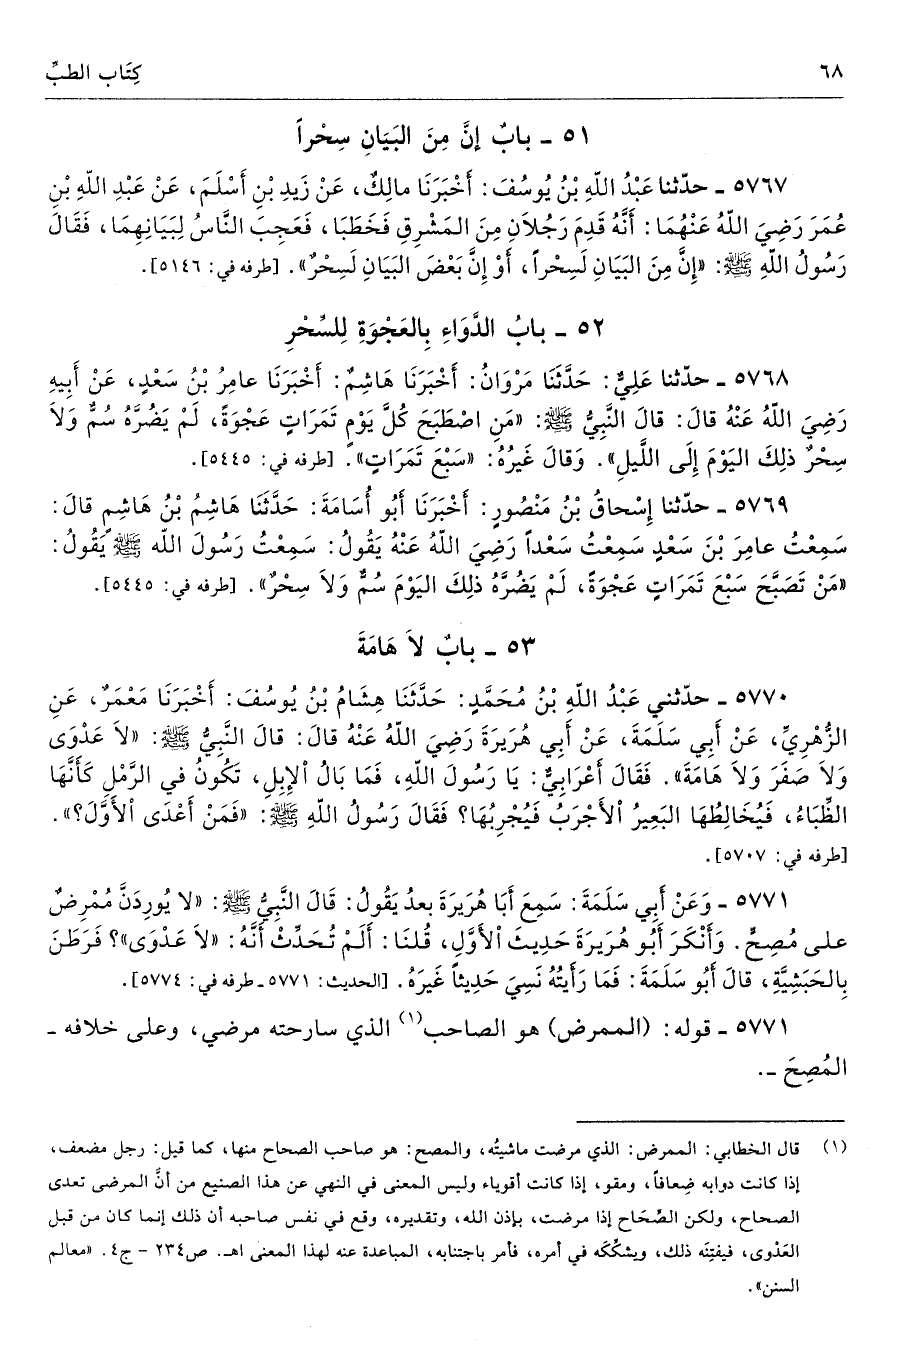 ٦٨
كِتَاب الطبِّ
٥١ ـ بابٌ إنَّ مِنَ البَيَانِ سِحْراً
٥٧٦٧ ـ حدّثنا عَبْدُ اللّهِ بْنُ يُوسُفَ: أَخْبَرَنَا مالِكٌ، عَنْ زَيدِ بْنِ أَسْلَمَ، عَنْ عَبْدِ اللّهِ بْنِ
عُمَرَ رَضِيَ اللّهُ عَنْهُمَا: أَنَّهُ قَدِمَ رَجُلاَنِ مِنَ المَشْرِقِ فَخَطَبَا، فَعَجِبَ النَّاسُ لِبَيَانِهِمَا، فَقَالَ
رَسُولُ اللّهِ ﷺ: «إِنَّ مِنَ البَيَانِ لَسِحْراً، أَوْ إِنَّ بَعْضَ البَيَانِ لَسِحْرٌ». [طرفه في: ٥١٤٦].
٥٢ ـ بابُ الدَّوَاءِ بِالعَجْوَةِ لِلسِّحْرِ
٥٧٦٨ ـ حدّثنا عَلِيٌّ: حَدَّثَنَا مَرْوَانُ: أَخْبَرَنَا هَاشِمٌ: أَخْبَرَنَا عامِرُ بْنُ سَعْدٍ، عَنْ أَبِيهِ
رَضِيَ اللّهُ عَنْهُ قالَ: قالَ النَّبِيُّ ﷺ: «مَنِ اصْطَبَحَ كُلَّ يَوْمٍ تَمَرَاتٍ عَجْوَةً، لَمْ يَضُرَّهُ سُمٌّ وَلاَ
سِحْرٌ ذلِكَ اليَوْمَ إِلَى اللَّيلِ». وَقالَ غَيرُهُ: «سَبْعَ تَمَرَاتٍ». [طرفه في: ٥٤٤٥].
٥٧٦٩ ـ حدّثنا إِسْحاقُ بْنُ مَنْصُورٍ: أَخْبَرَنَا أَبُو أُسَامَةَ: حَدَّثَنَا هَاشِمُ بْنُ هَاشِمٍ قالَ:
سَمِعْتُ عامِرَ بْنَ سَعْدٍ سَمِعْتُ سَعْداً رَضِيَ اللّهُ عَنْهُ يَقُولُ: سَمِعْتُ رَسُولَ اللّه ﷺ يَقُولُ:
«مَنْ تَصَبَّحَ سَبْعَ تَمَرَاتٍ عَجْوَةً، لَمْ يَضُرَّهُ ذلِكَ اليَوْمَ سُمٌّ وَلاَ سِحْرٌ». [طرفه في: ٥٤٤٥].
٥٣ ـ بابٌ لاَ هَامَةَ
٥٧٧٠ ـ حدّثني عَبْدُ اللّهِ بْنُ مُحَمَّدٍ: حَدَّثَنَا هِشَامُ بْنُ يُوسُفَ: أَخْبَرَنَا مَعْمَرٌ، عَنِ
الزُّهْرِيِّ، عَنْ أَبِي سَلَمَةَ، عَنْ أَبِي هُرَيرَةَ رَضِيَ اللّهُ عَنْهُ قالَ: قالَ النَّبِيُّ ﷺ: «لاَ عَدْوَى
وَلاَ صَفَرَ وَلاَ هَامَةَ». فَقَالَ أَعْرَابِيٌّ: يَا رَسُولَ اللّهِ، فَمَا بَالُ الإِبِلِ، تَكُونُ في الرَّمْلِ كَأَنَّهَا
الظِّبَاءُ، فَيُخَالِطُهَا البَعِيرُ الأَجْرَبُ فَيُجْرِبُهَا؟ فَقَالَ رَسُولُ اللّهِ ﷺ: «فَمَنْ أَعْدَى الأَوَّلَ؟».
[طرفه في: ٥٧٠٧].
٥٧٧١ ـ وَعَنْ أَبِي سَلَمَةَ: سَمِعَ أَبَا هُرَيرَةَ بعدُ يَقُولُ: قَالَ النَّبِيُّ ﷺ: «لا يُورِدَنَّ مُمْرِضٌ
على مُصِحٍّ. وَأَنْكَرَ أَبو هُرَيرَةَ حَدِيثَ الأَوَّلِ، قُلنَا: أَلَمْ تُحَدِّثْ أَنَّهُ: «لاَ عَدْوَى»؟ فَرَطَنَ
بِالحَبَشِيَّةِ، قَالَ أَبُو سَلَمَةَ: فَمَا رَأَيتُهُ نَسِيَ حَدِيثاً غَيرَهُ. [الحديث: ٥٧٧١ ـ طرفه في: ٥٧٧٤].
٥٧٧١ ـ قوله: (الممرض) هو الصاحب(١) الذي سارحته مرضي، وعلى خلافه ـ
المُصِحَ ـ.
(١) قال الخطابي: الممرض: الذي مرضت ماشيتُه، والمصح: هو صاحب الصحاح منها، كما قيل: رجل مضعف،
إذا كانت دوابه ضِعافاً، ومقو، إذا كانت أقوياء وليس المعنى في النهي عن هذا الصنيع من أنَّ المرضى تعدى
الصحاح، ولكن الصِّحَاح إذا مرضت، بإذن الله، وتقديره، وقع في نفس صاحبه أن ذلك إنما كان من قبل
العَدْوى، فيفتِنَه ذلك، ويشكِّكَه في أمره، فأمر باجتنابه، المباعدة عنه لهذا المعنى اهـ. ص٢٣٤ - ج٤. «معالم
السنن».